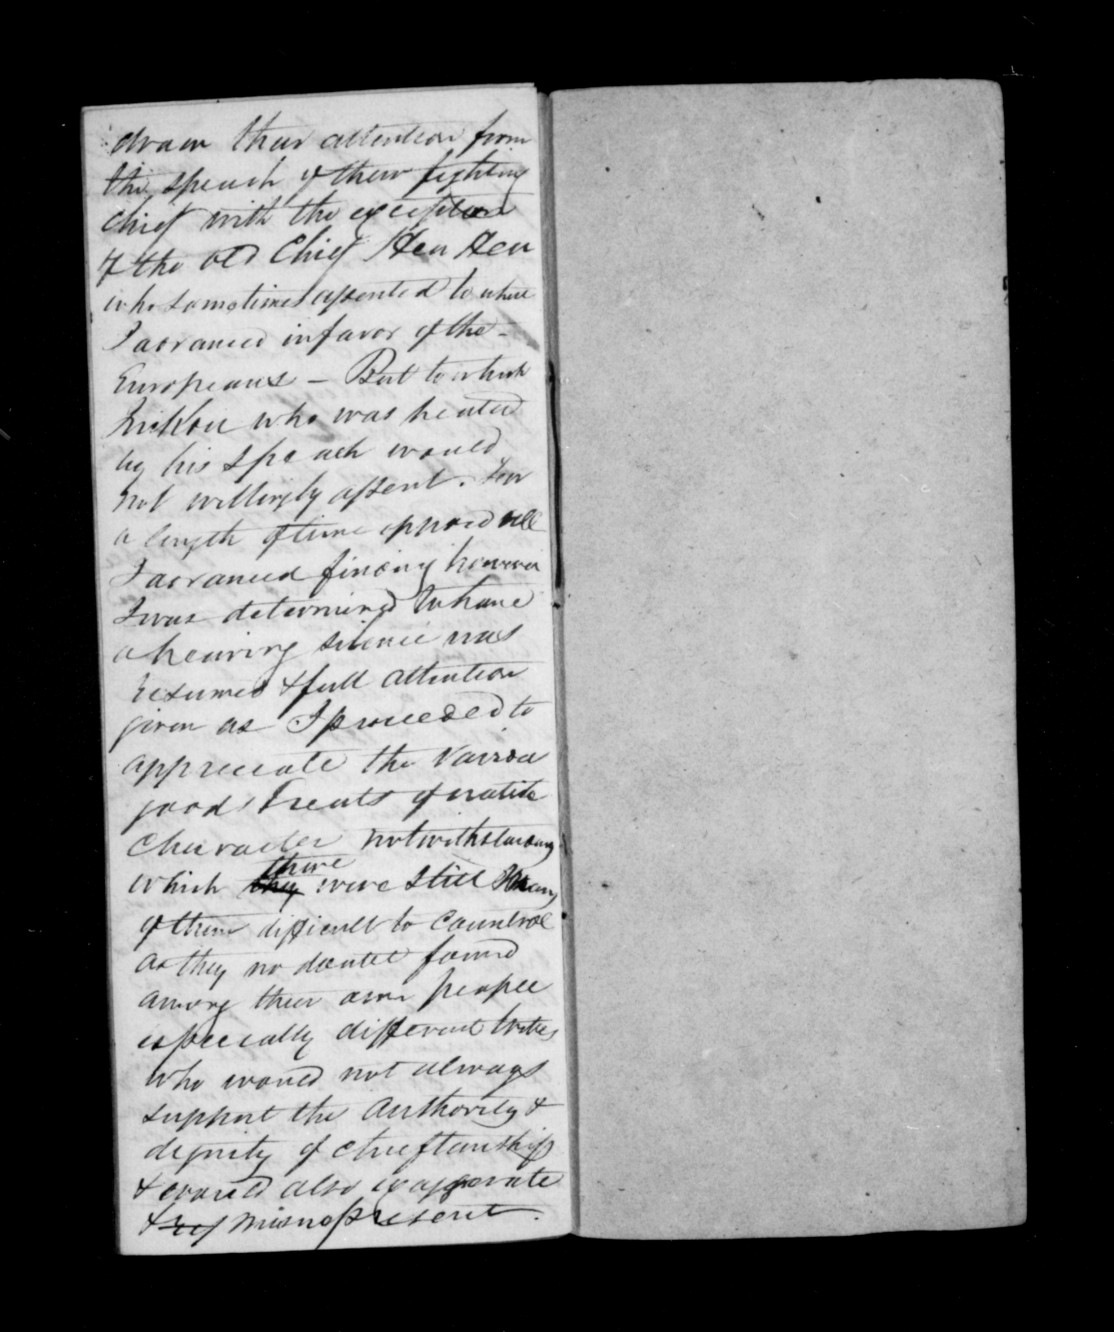 draw their attention from
the speech of their fighting
chief with the exception
of the old Chief Heu Heu
who sometimes assented to what
I advanced in favor of the -
Europeans - But to which
who was heated
by his speach would
not willingly assent. For
a length of time opposed all
I advanced finding however
I was determined to have
a hearing silence was
resumed & full attention
given as I proceeded to
appreciate the Varios
good Treats of native
Character notwithstanding
which they there were still Many
of them difficult to Countrol
as they no doubt found
among their own people
especially different tribes
who would not always
support the Authority &
dignity of chieftanship
& would also exaggerate
& rep misrepresent.